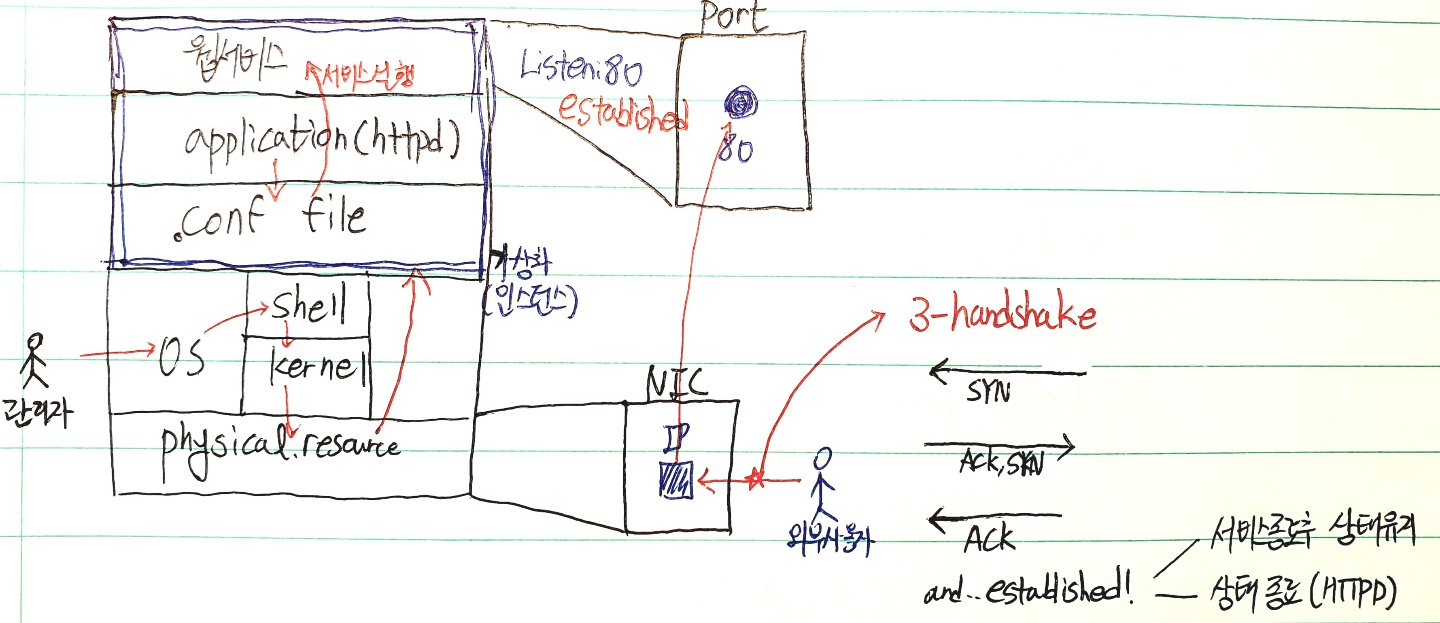 Port
웹서비스
서비스실행
Listen:80
established
application(httpd)
80
.conf file
가상화
(인스턴스)
shell
OS
kernel
관리자
physical.resource
NIC
IP
외부사용자
3-handshake
SYN
Ack,SYN
ACK
and..established!
서비스종료후 상태유지
상태종료(HTTPD)